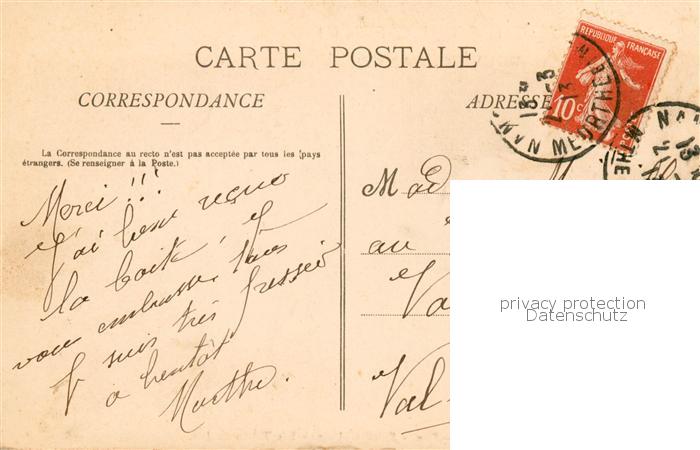 CARTE POSTALE
CORRESPONDANCE
ADRESSE
La Correspondance au recto n'est pas acceptée par tous les pays
étrangers. (Se renseigner à la Poste.)
REPUBLIQUE FRANÇAISE
10c
13
3
13
NAN MEURTHE
NAN
13
MTHE
Merci !!!
J'ai bien reçue
la boite, J
vous embrasse. Tous
J suis très pressée
a bientot
Marthe.
Mad
au
Va
Val
privacy protection
Datenschutz